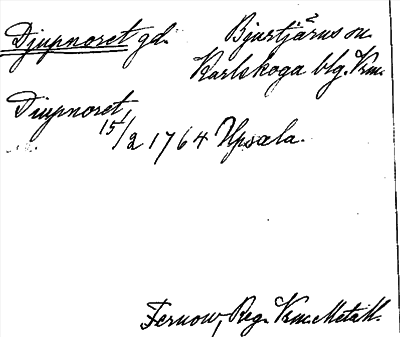 Djupnoret gd. Bjurtjärns sn.
Karlskoga blg. Vrm.
Diupnoret
15/2 1764 Upsala.
Fernow, Reg. Vrm. Metall.